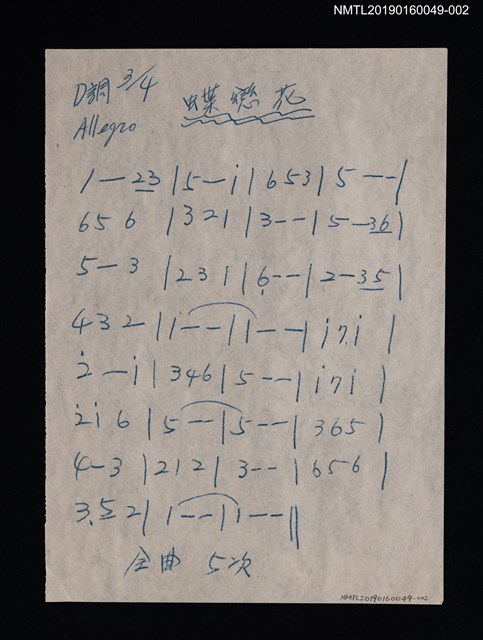 NMTL20190160049-002
D調 3/4
蝶戀花
Allegro
1 — 2̲3̲ | 5 — i | 6 5 3 | 5 - - |
6 5 6 | 3 2 1 | 3 - - | 5 — 3̲6̲ |
5 - 3 | 2 3 1 | 6̣ - - | 2 - 3̲5̲ |
4 3 2 - | 1 - - | 1 - - | i 7 i |
2̇ - i | 3 4 6 | 5 - - | i 7 i |
2̇ i 6 | 5 - - | 5 - - | 3 6 5 |
4 - 3 | 2 1 2 | 3 - - | 6 5 6 |
3. 5̲ 2 | 1 - - | 1 - - ||
全曲 5次
NMTL20190160049-002